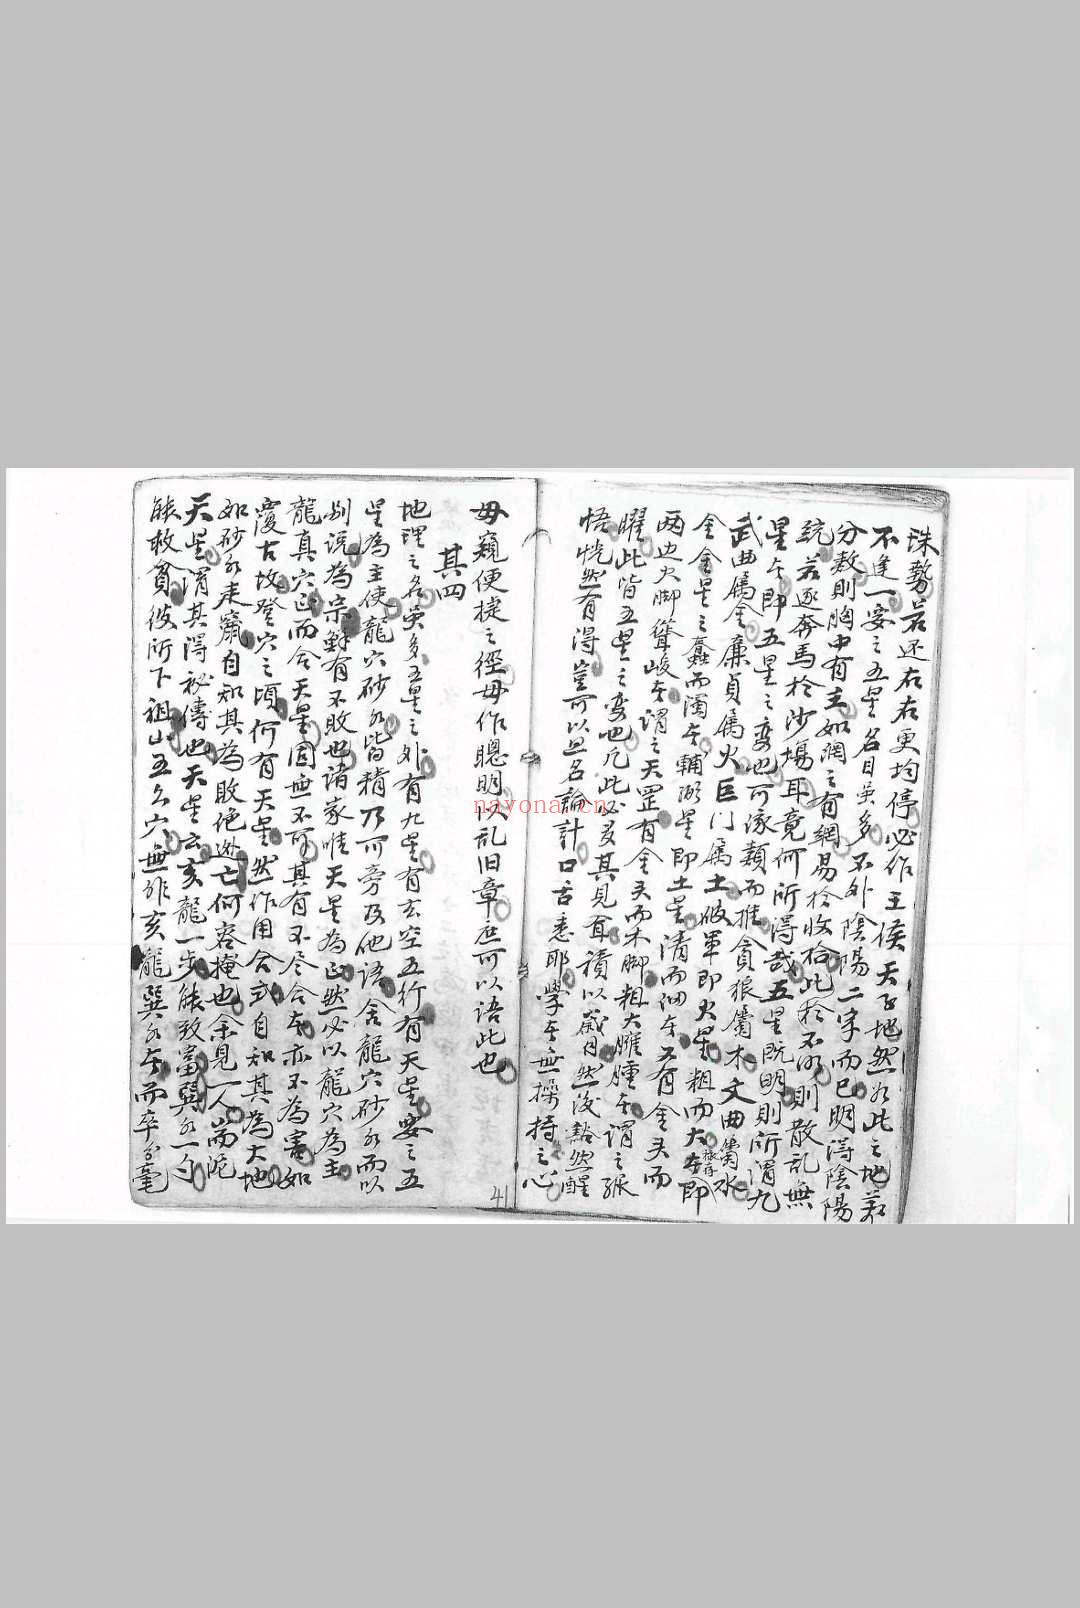 殊勢若还左右更均停必作王侯天子地然如此之地若
不逢一安之五星名目英多不外陰陽二字而已明得陰陽
分教則胸中有主如網之有綱易於收拾此於不明則散乱無
統若逐奔馬於沙場耳竟何所得哉五星既明則所谓九
星者即五星之变也可逐類而推貪狼屬木文曲屬水
武曲属金廉貞属火巨门属土破軍即火星粗而大者祿存即
金金星之蠢而濁者輔弼星即土星清而細者又有金头而
两边火脚聳峻者谓之天罡有金头而木脚粗大臃腫者谓之孤
曜此皆五星之变也凡此必足其見耳積以歲月然後豁然醒
悟恍然有得豈可以且名論計口舌悉耶學者無操持之心
毋窺便捷之徑毋作聰明以乱旧章庶可以语此也
其四
地理之名英多五星之外有九星有玄空五行有天星要之五
星為主使龍穴砂水皆精乃可旁及他语舍龍穴砂水而以
别说為宗鮮有不敗也诸家惟天星為正然必以龍穴為主
龍真穴正而合天星固無不可其有不尽合者亦不為害如
覆古坟登穴之頃何有天星然作用合式自和其為大地
如砂水走竄自知其為敗绝逃亡何容掩也余見一人耑泥
天星谓其得祕傳也天星云亥龍一步能致富巽水一勺
能救貧彼所下祖山五六穴無非亥龍巽水者而卒分毫
41
nayona.cn